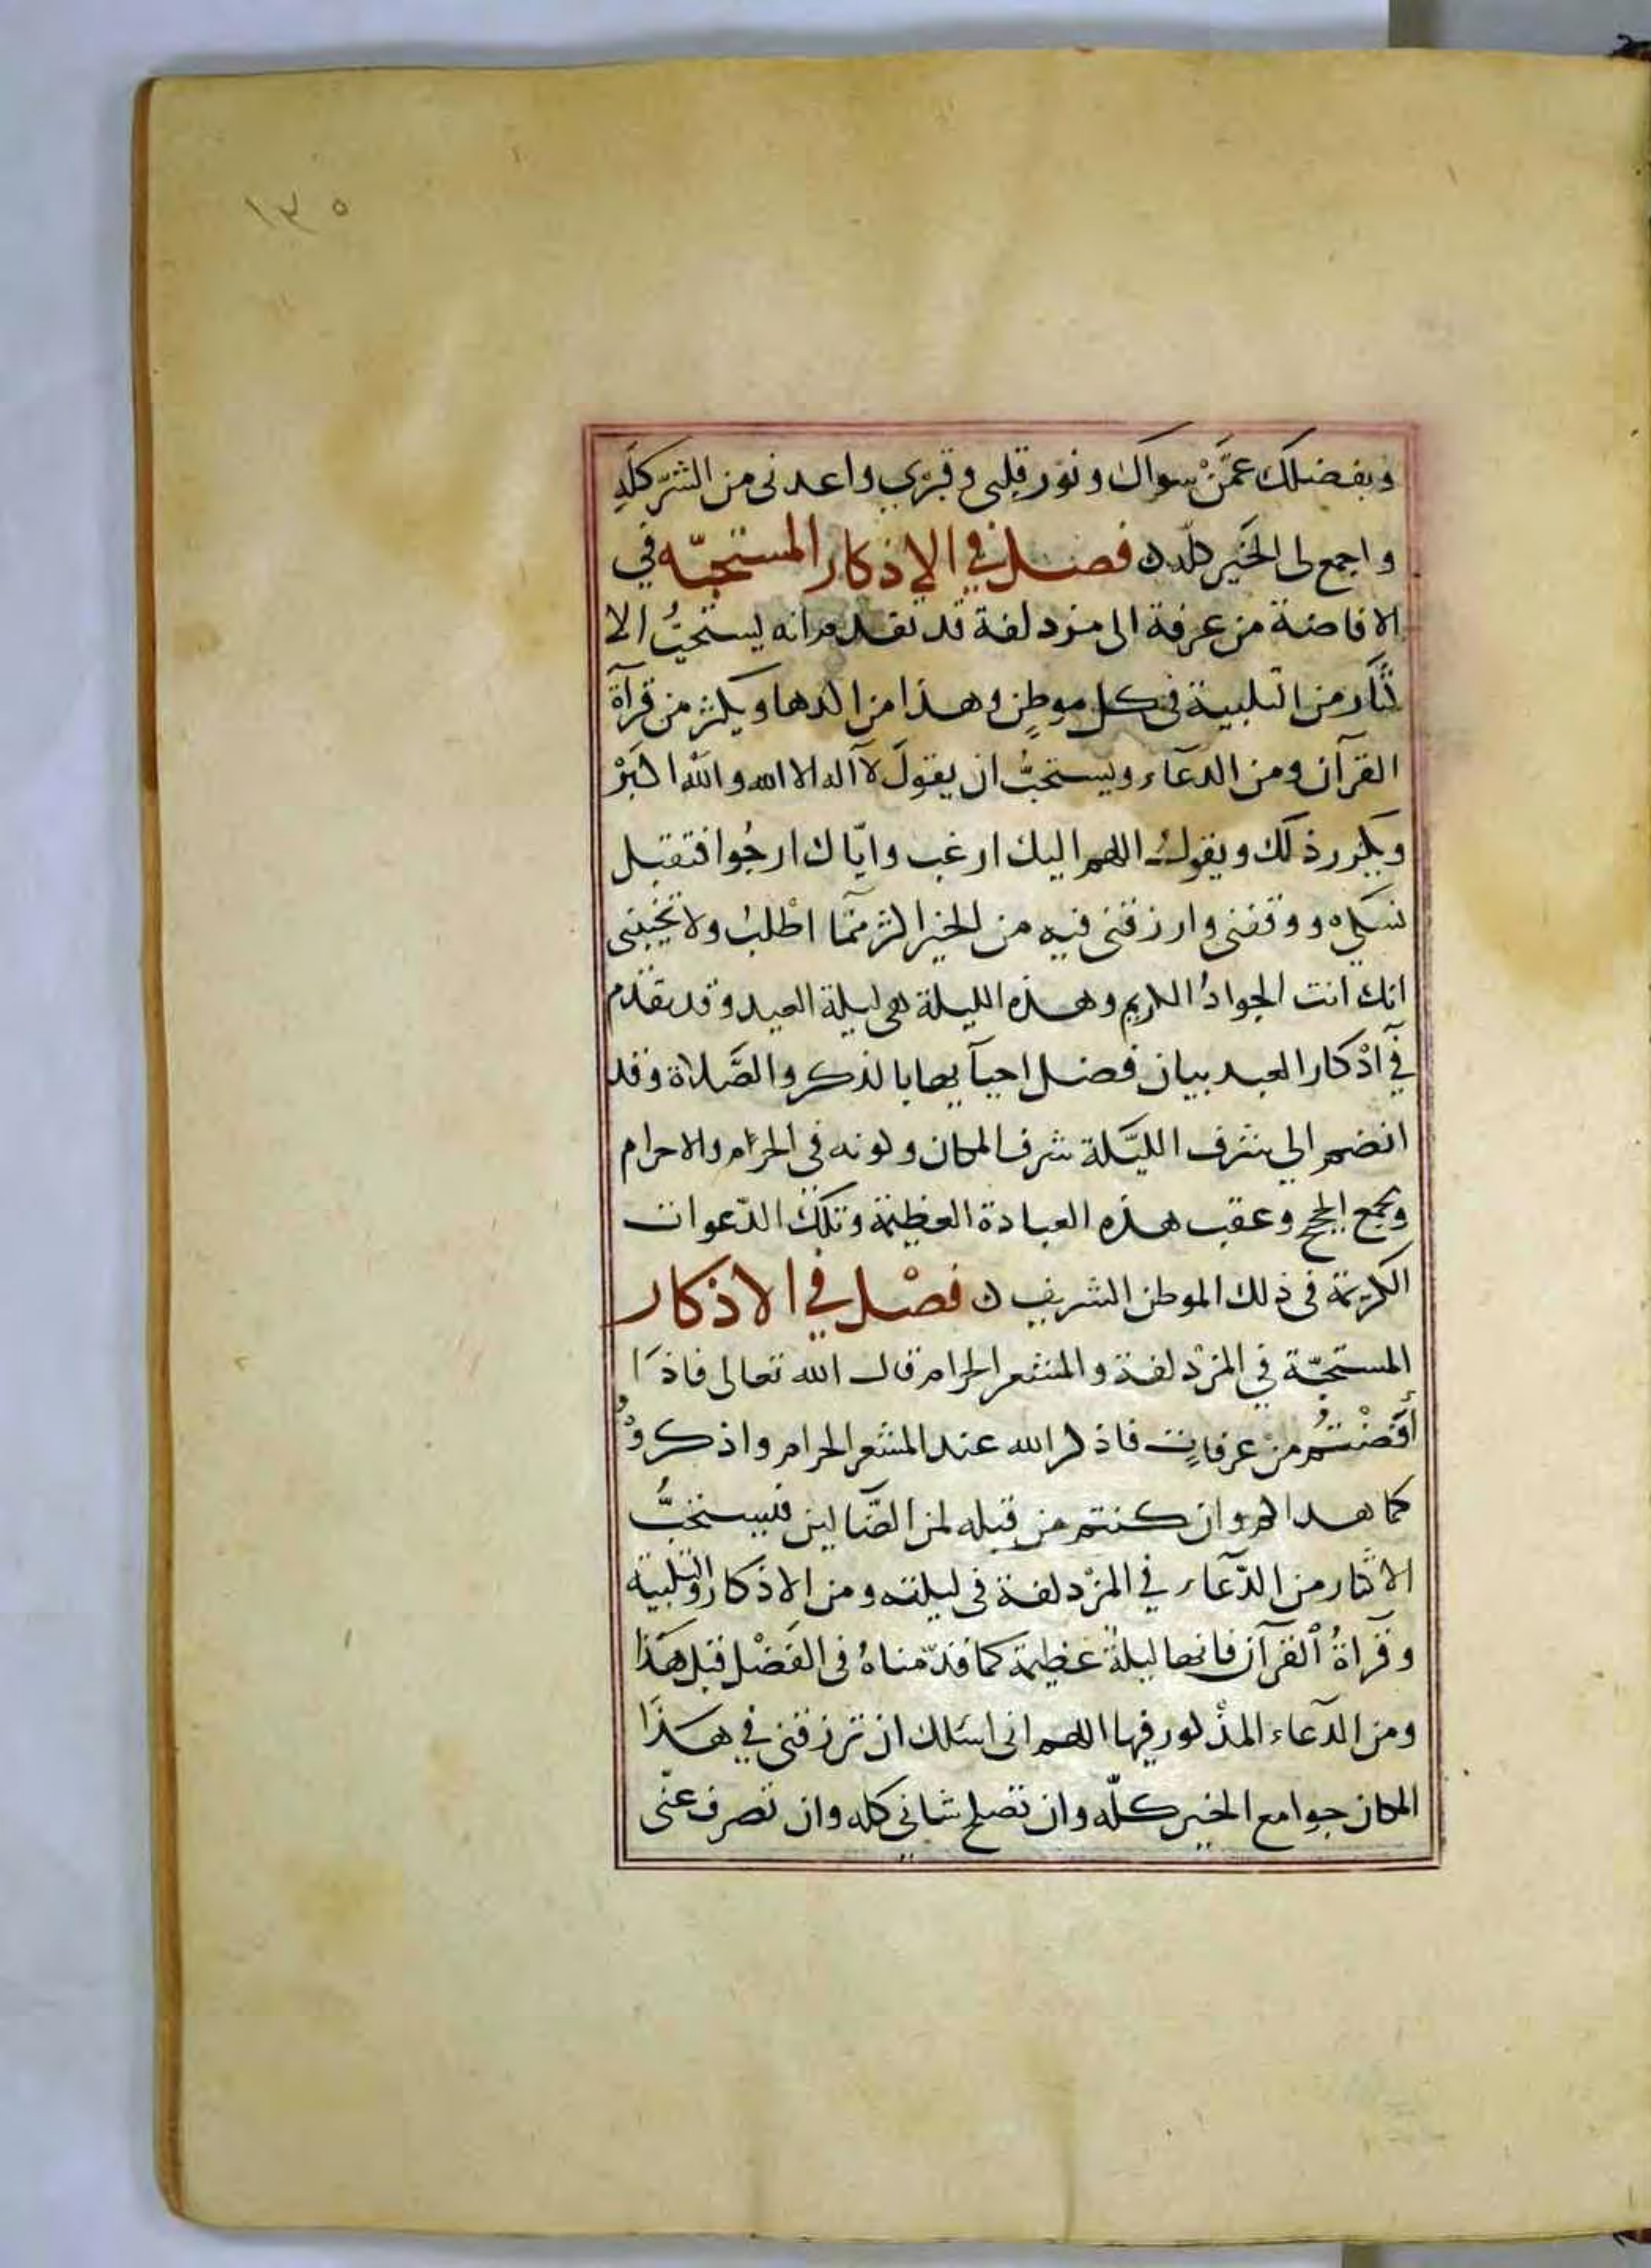 ١٣٥
وبفضلك عمَّنْ سواك ونوّر قلبى وقبْرِي واعدنى من الشرّ كلّهِ
واجمع لى الخَير كلّه ن فصل في الاذكار المستحبّه في
الافاضة من عرفة الى مزدلفة قد تقدم انه يستحبُّ الا
كثار من التلبية فى كل موطنٍ وهذا من اكدها ويكثر من قرآة
القرآن ومن الدعآء ويستحبُّ ان يقولَ لآ اله الا الله والله اكبرْ
ويكرر ذلك ويقولُ اللهم اليك ارغب وايّاك ارجُوا فتقبل
نسكي ووفقنى وارزقنى فيه من الخير اكثر ممّا اطْلبُ ولا تخيبنى
انك انت الجوادُ الكريم وهذه الليلة هى ليلة العيد وقد تقدم
في اذْكار العيد بيان فضل احيآيها بالذكر والصَّلاة وقد
انضم الي شرف الليّلة شرف المكان وكونه في الحرَام والاحرام
ومجمع الحج وعقب هذه العبادة العظيمة وتلك الدّعوات
الكريمة فى ذلك الموطن الشريف ن فصْل في الاذكار
المستحبّة في المزْدلفة والمشعر الحرام قال الله تعالى فاذَا
أَفَضْتُم منْ عرفاتٍ فاذكر الله عند المشعر الحرام واذكروْ
كما هداكم وان كنتم من قبله لمن الضّآلين فيستحَبُّ
الاكثار من الدّعآء في المزْدلفة فى ليلته ومن الاذكار والتلبية
وقرآةُ القرآن فانها ليلةٌ عظيمة كما قدّمناهُ فى الفَضْل قبل هَذا
ومن الدعآء المذْكور فيها اللهم انى اسئلك ان ترزقنى في هذَا
المكان جوامع الخير كلّه وان تصلح شانى كله وان تصرف عنّى